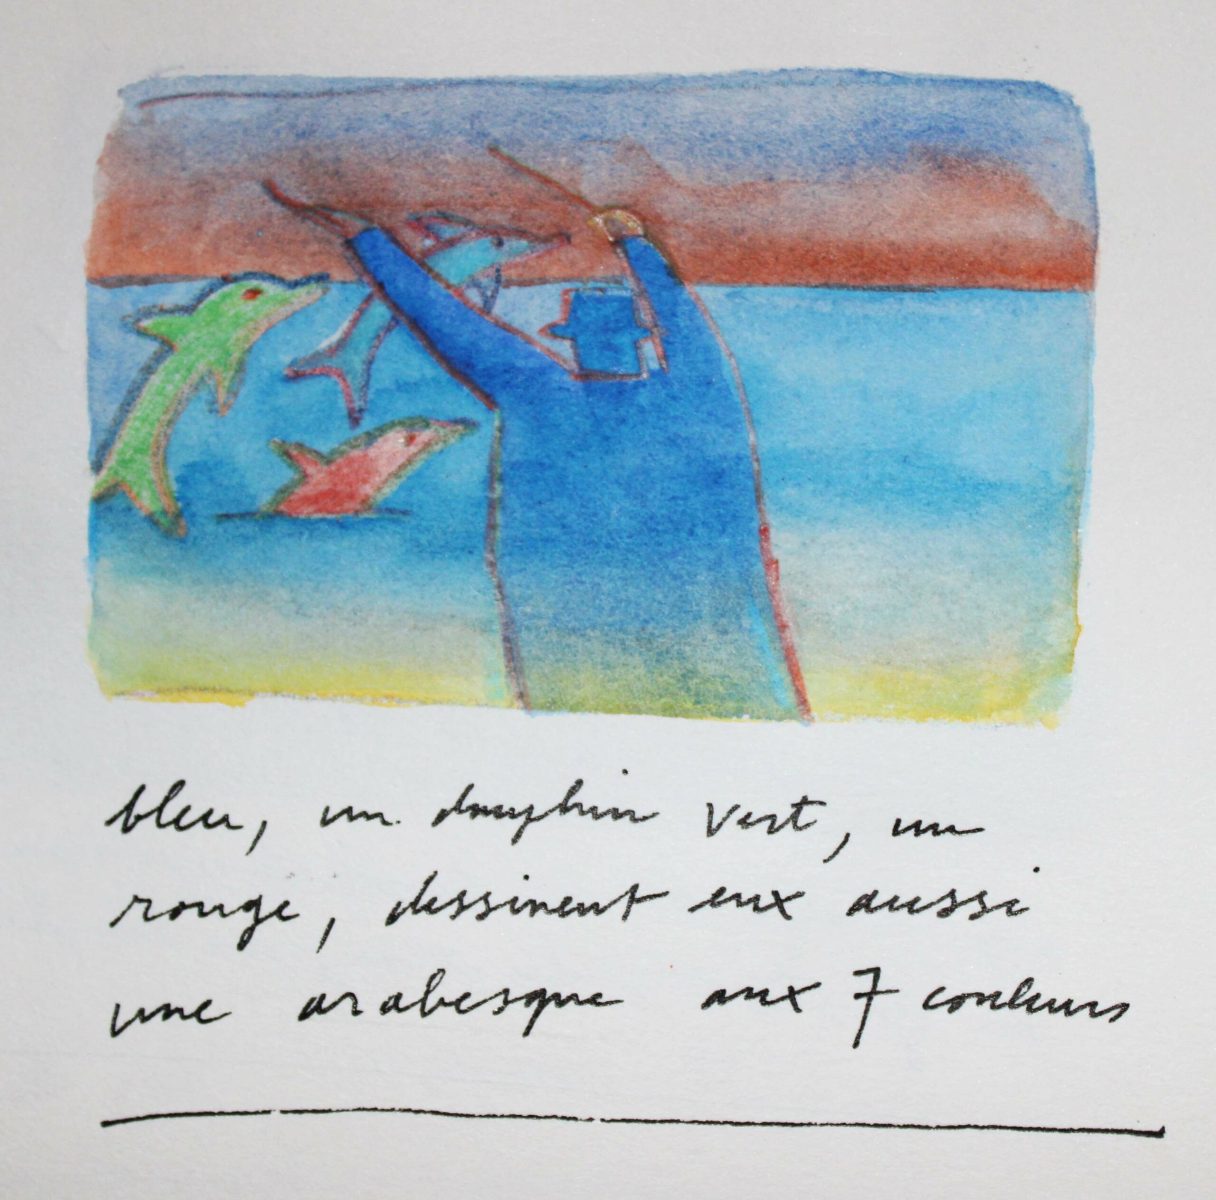 bleu, un dauphin vert, un
rouge, dessinent eux aussi
une arabesque aux 7 couleurs